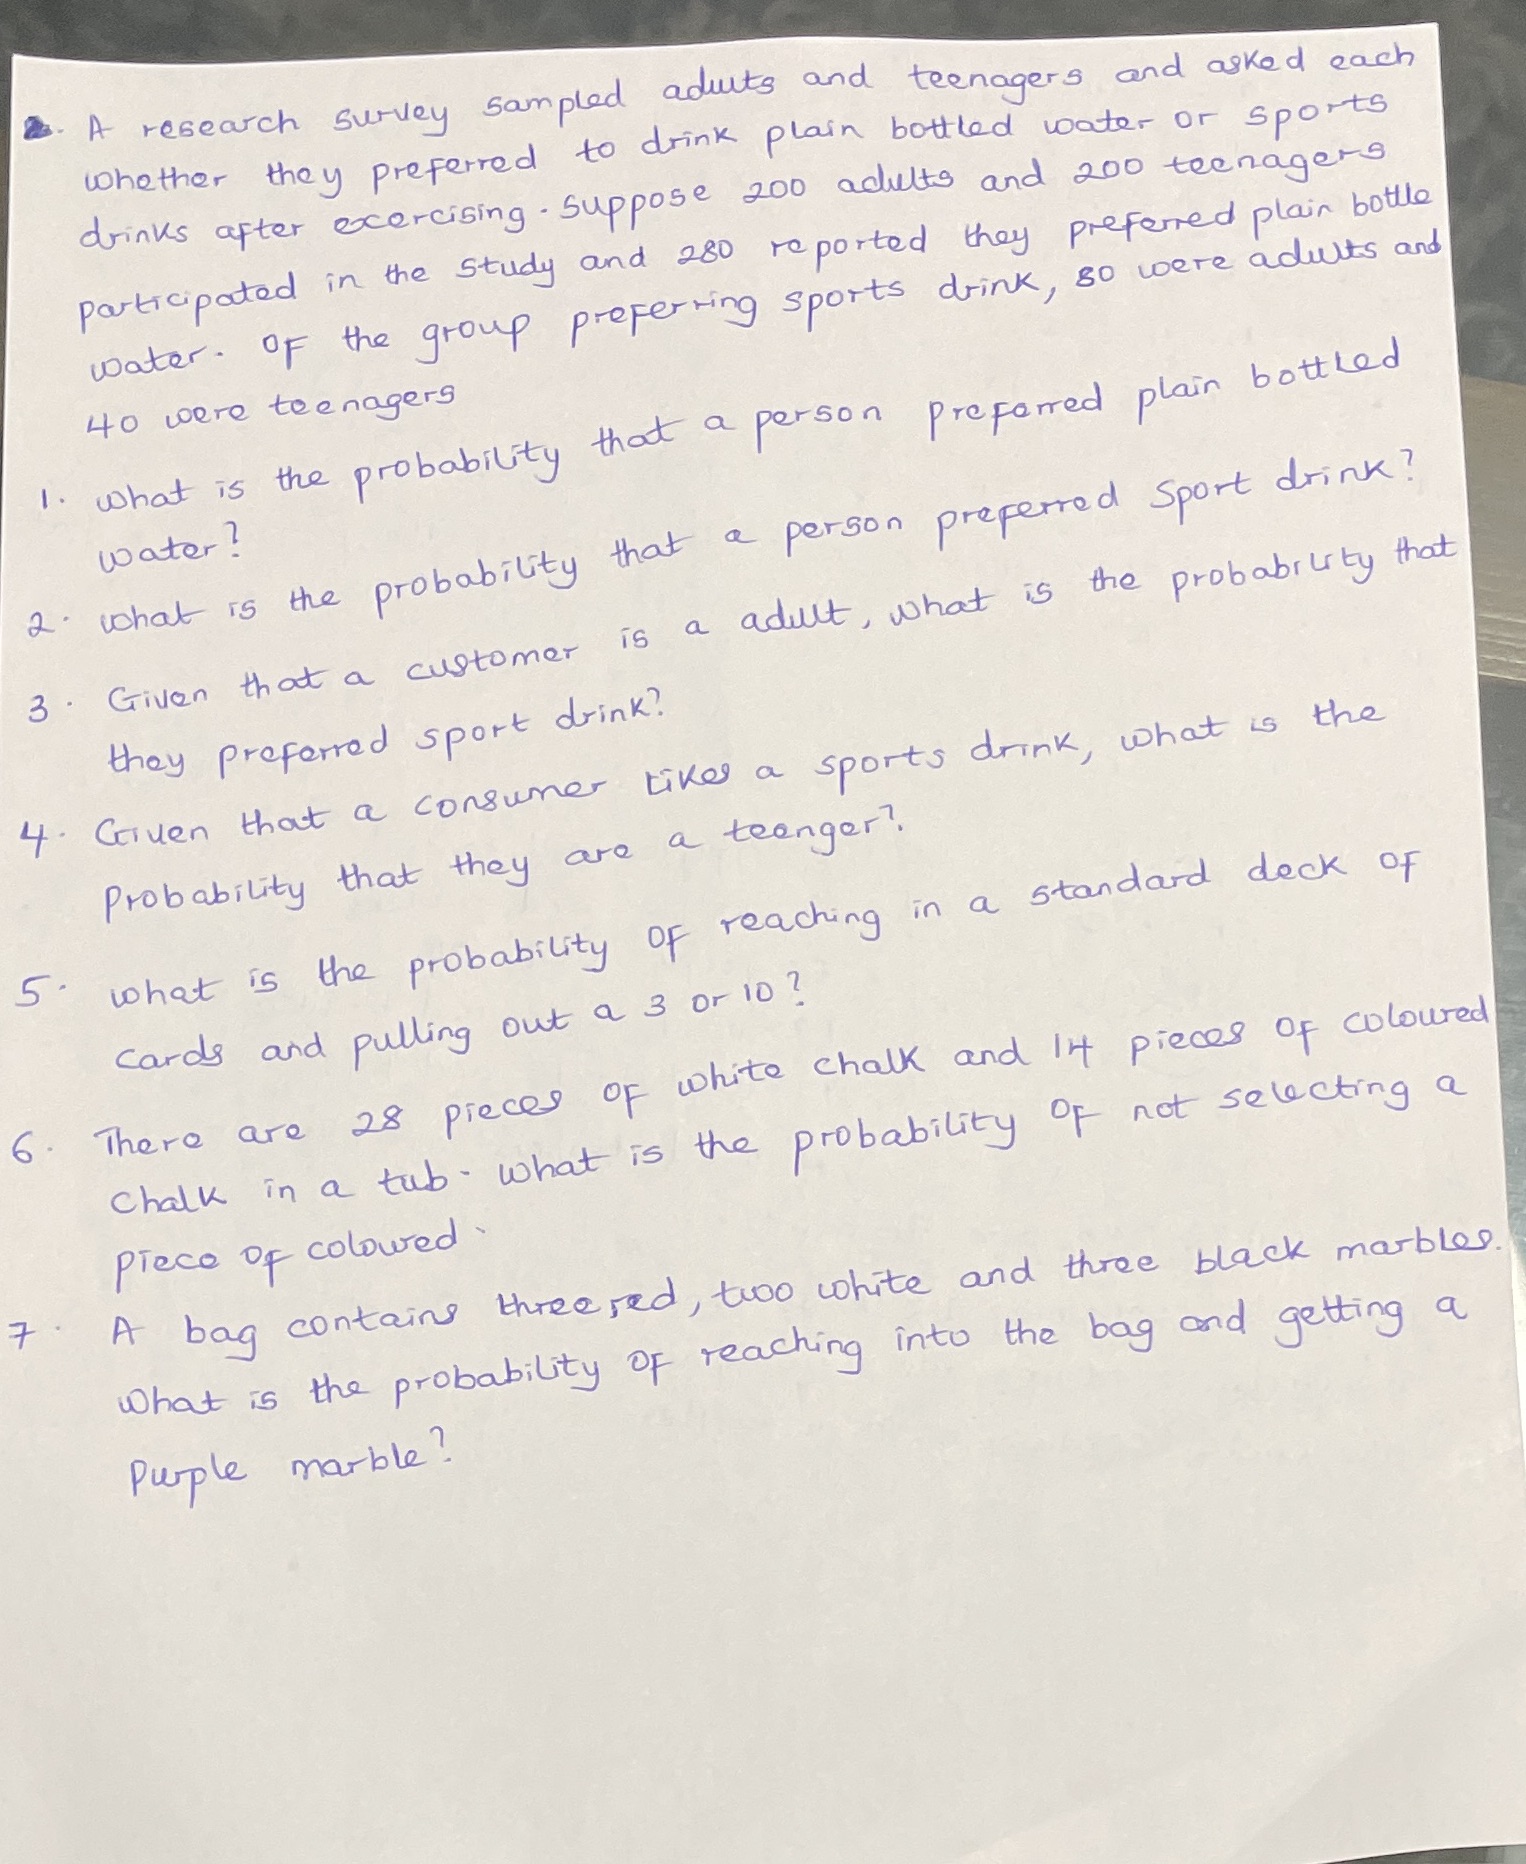 2. A research survey sampled adults and teenagers and asked each
whether they preferred to drink plain bottled water or sports
drinks after excercising. Suppose 200 adults and 200 teenagers
participated in the study and 280 reported they preferred plain bottle
water. Of the group preferring sports drink, 80 were adults and
40 were teenagers
1. What is the probability that a person preferred plain bottled
water?
2. What is the probability that a person preferred Sport drink?
3. Given that a customer is a adult, what is the probability that
they preferred sport drink?
4. Given that a consumer likes a sports drink, what is the
Probability that they are a teenger?
5. What is the probability of reaching in a standard deck of
cards and pulling out a 3 or 10?
6. There are 28 pieces of white chalk and 14 pieces of coloured
chalk in a tub. What is the probability of not selecting a
piece of coloured.
7. A bag contains three red, two white and three black marbles.
What is the probability of reaching into the bag and getting a
Purple marble?